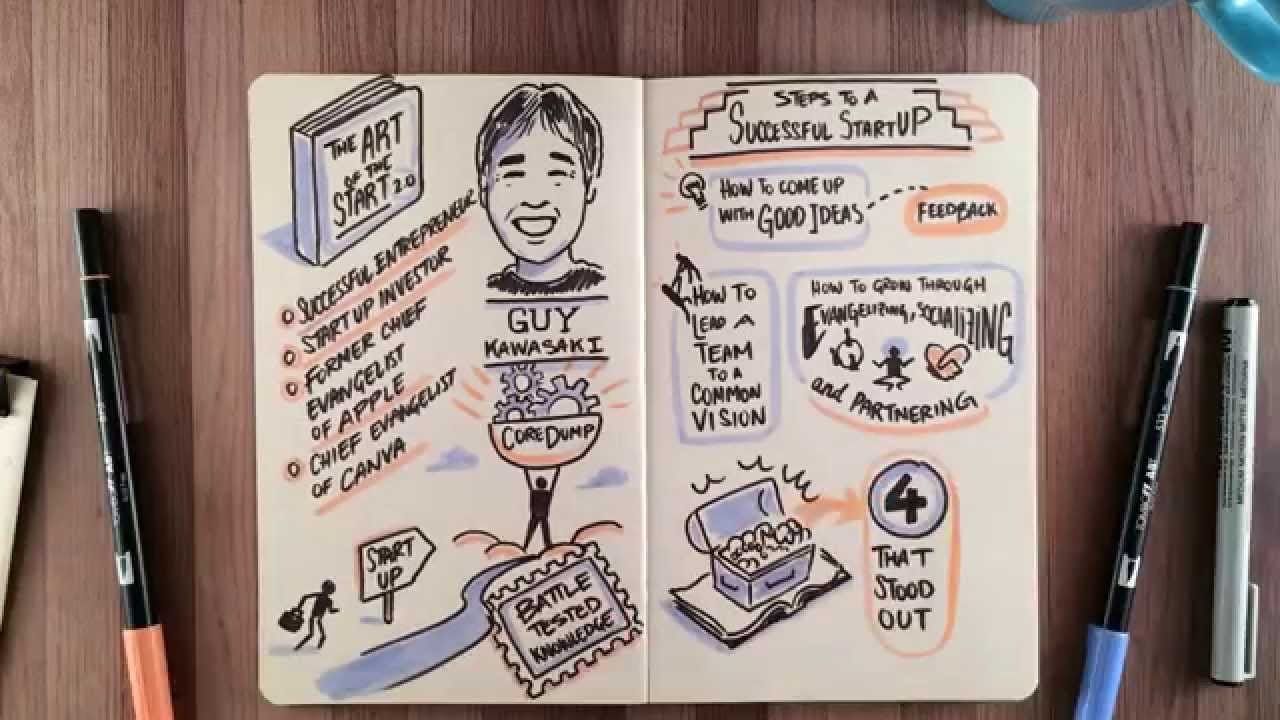 THE ART
OF THE
START 2.0
SUCCESSFUL ENTREPRENEUR
STARTUP INVESTOR
FORMER CHIEF
EVANGELIST
OF APPLE
CHIEF EVANGELIST
OF CANVA
GUY
KAWASAKI
CORE DUMP
START
UP
BATTLE
TESTED
KNOWLEDGE
STEPS TO A
SUCCESSFUL STARTUP
HOW TO COME UP
WITH GOOD IDEAS
FEEDBACK
HOW TO
LEAD A
TEAM
TO A
COMMON
VISION
HOW TO GROW THROUGH
EVANGELIZING, SOCIALIZING
and PARTNERING
4
THAT
STOOD
OUT